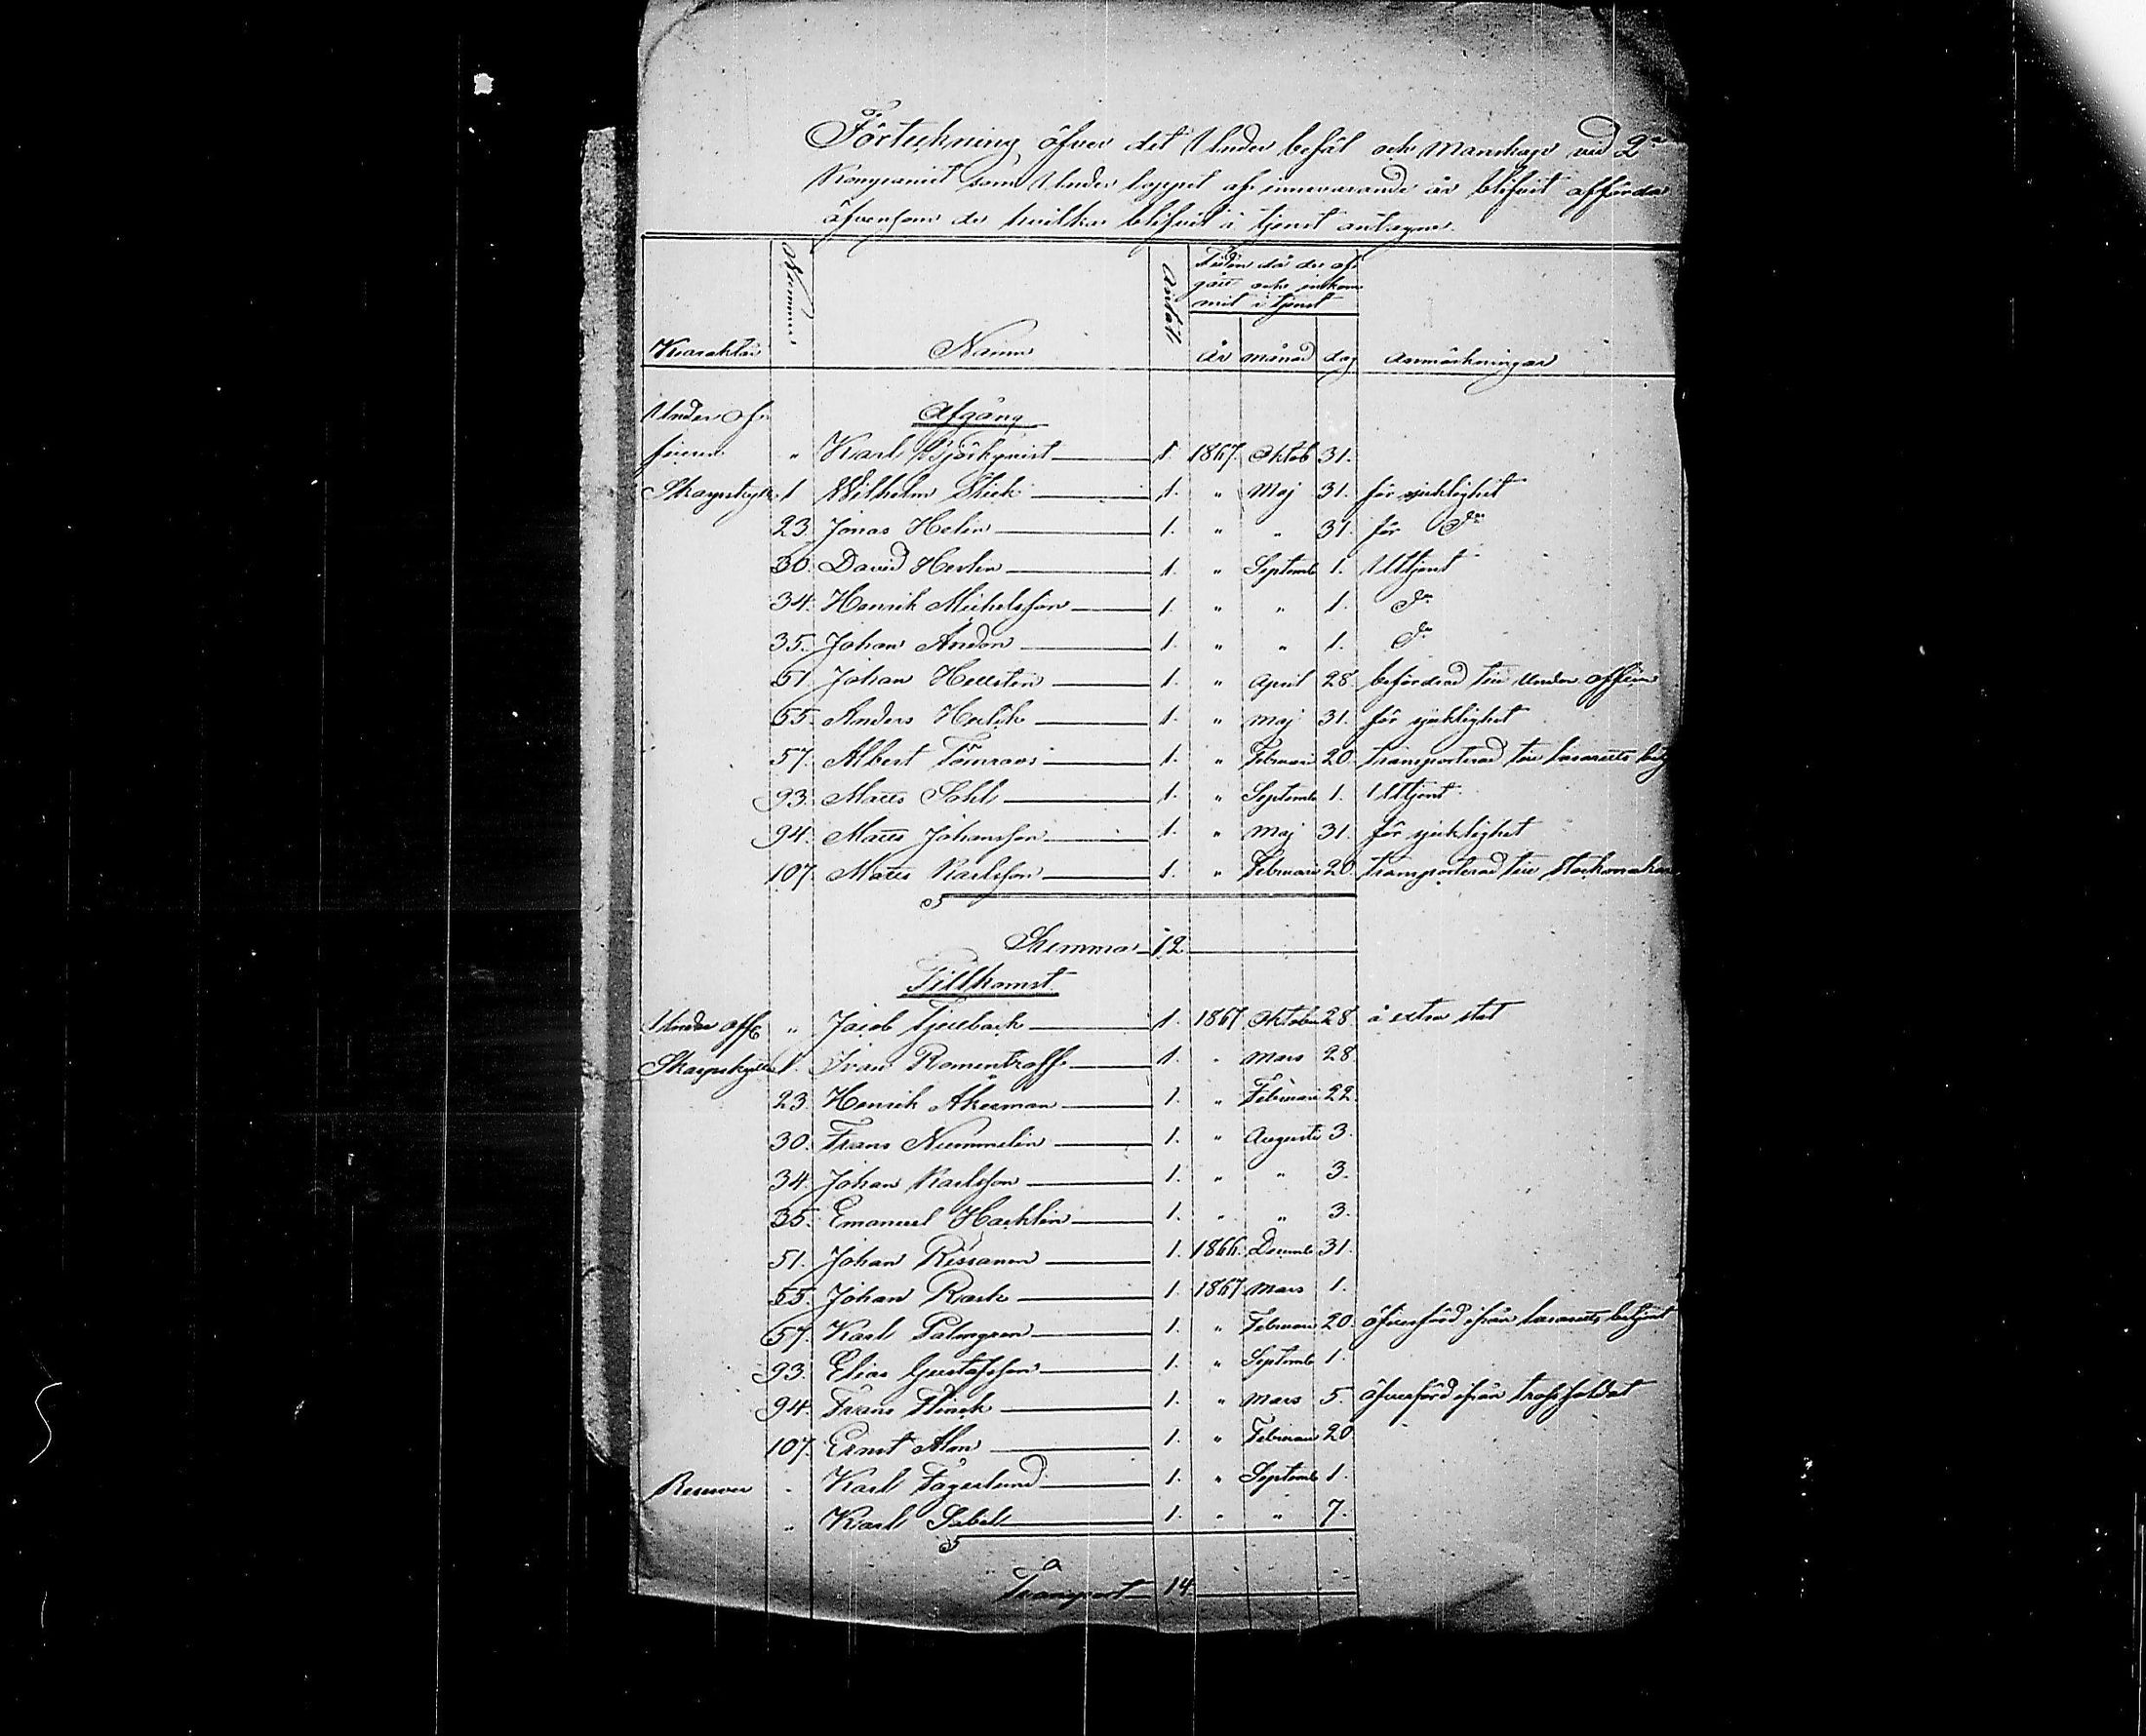 Förteckning öfver det Under befäl och Manskap vid 2a
Kompaniet som Under loppet af innevarande år blifvit afförda
äfvensom de hvilka blifvit i tjenst antagne.
Karaktär Nummer Namn Antal Tiden då de af- Anmärkningar
gått och inkom-
mit i tjenst
År månad dag
Under of- Afgång
ficerer " Karl Björkqvist 1. 1867. Oktob 31.
Skarpskytt 1 Wilhelm Stick 1. " Maj 31. för sjuklighet
23. Jonas Helin 1. " " 31. för Do
30. David Herlin 1. " Septemb 1. Uttjent
34. Henrik Michelsson 1. " " 1. Do
35. Johan Andon 1. " " 1. Do
51. Johan Hellsten 1. " April 28. befordrad till Under officer
55. Anders Hulck 1. " Maj 31. för sjuklighet
57. Albert Tömroos 1. " Februari 20. transporterad till lasaretts betj
93. Matts Sahl 1. " Septemb 1. Uttjent
94. Matts Johansson 1. " Maj 31. för sjuklighet
107. Matts Karlsson 1. " Februari 20. transporterad till
Summa 12.
Tillkomst
Under offc " Jacob Tjellback 1. 1867 Oktober 28 å extra stat
Skarpskytt 1. Ivan Romentzoff 1. " Mars 28.
23. Henrik Åkerman 1. " Februari 22.
30. Frans Nummelin 1. " Augusti 3.
34. Johan Karlsson 1. " " 3.
35. Emanuel Hacklin 1. " " 3.
51. Johan Rissanen 1. 1866. Decemb 31.
55. Johan Rask 1. 1867 Mars 1.
57. Karl Palmgren 1. " Februari 20. öfverförd ifrån lasaretts betjent
93. Elias Gustafsson 1. " Septemb 1.
94. Frans Flinck 1. " Mars 5. öfverförd ifrån trosssoldat
107. Ernst Alen 1. " Februari 20
Reserver " Karl Fagerlund 1. " Septemb 1.
" Karl Sabel 1. " " 7.
Transport 14.